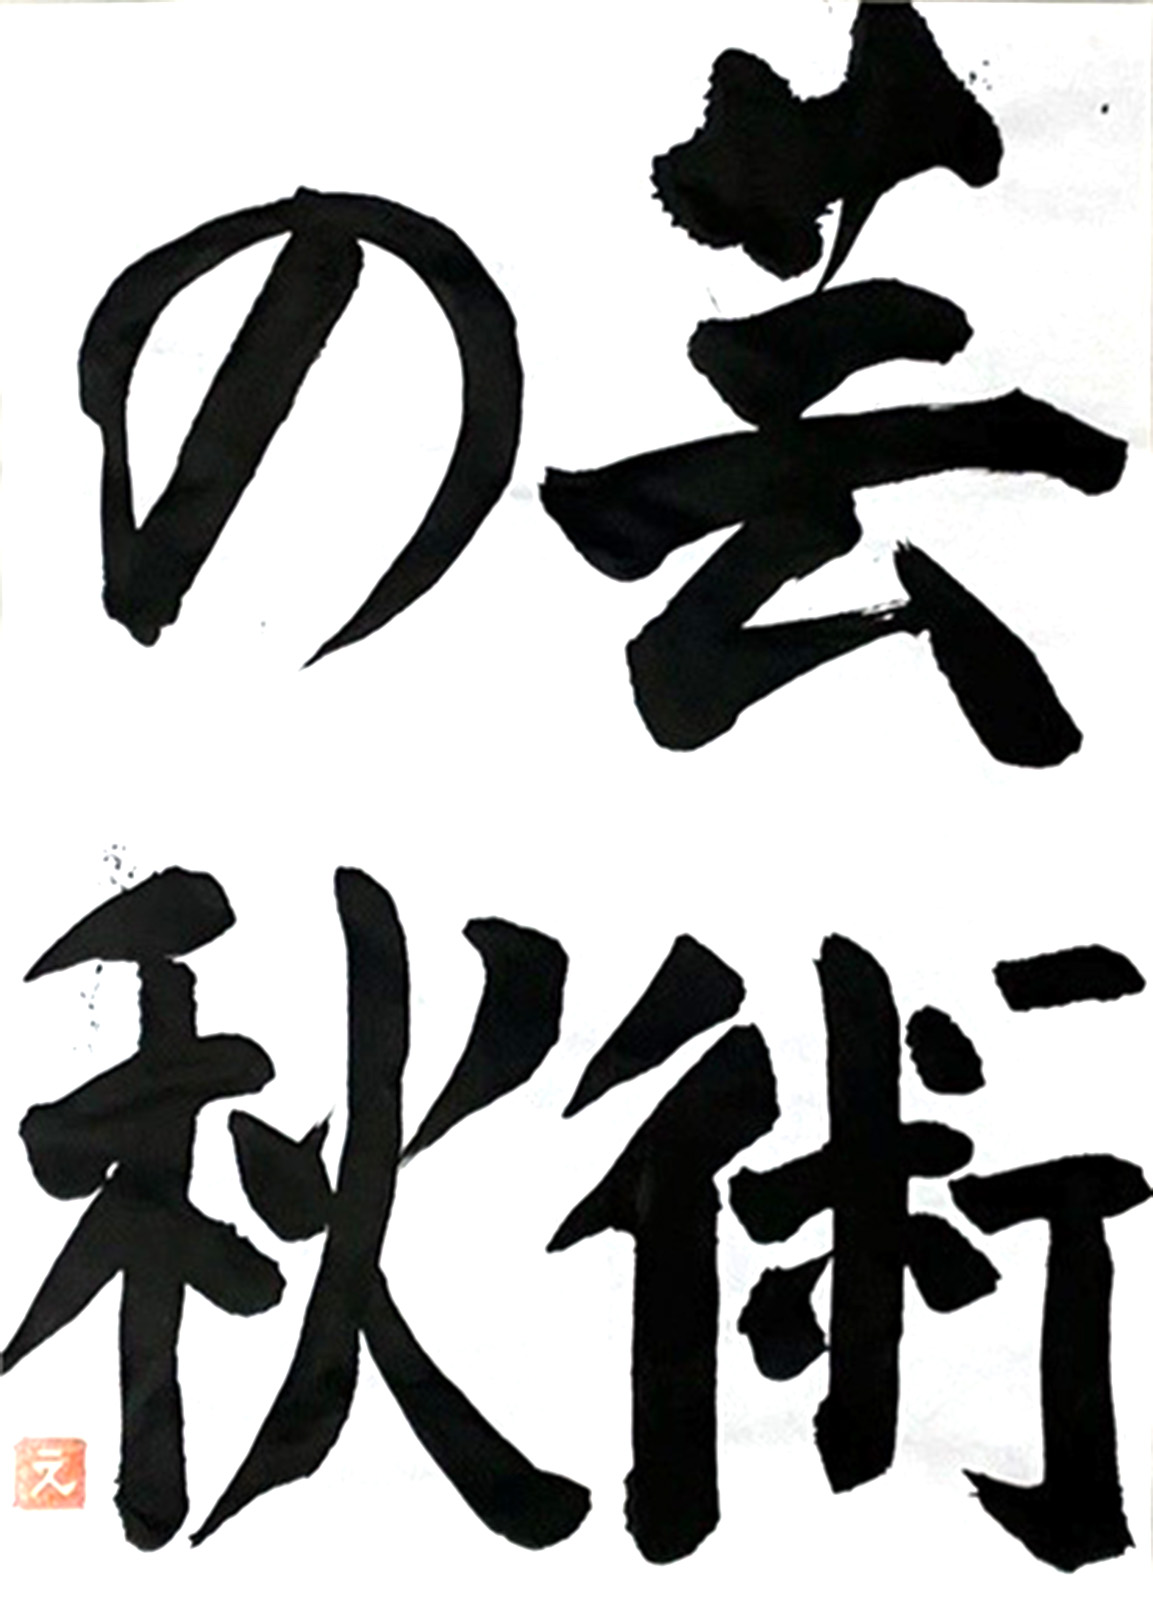 芸術
の秋
え